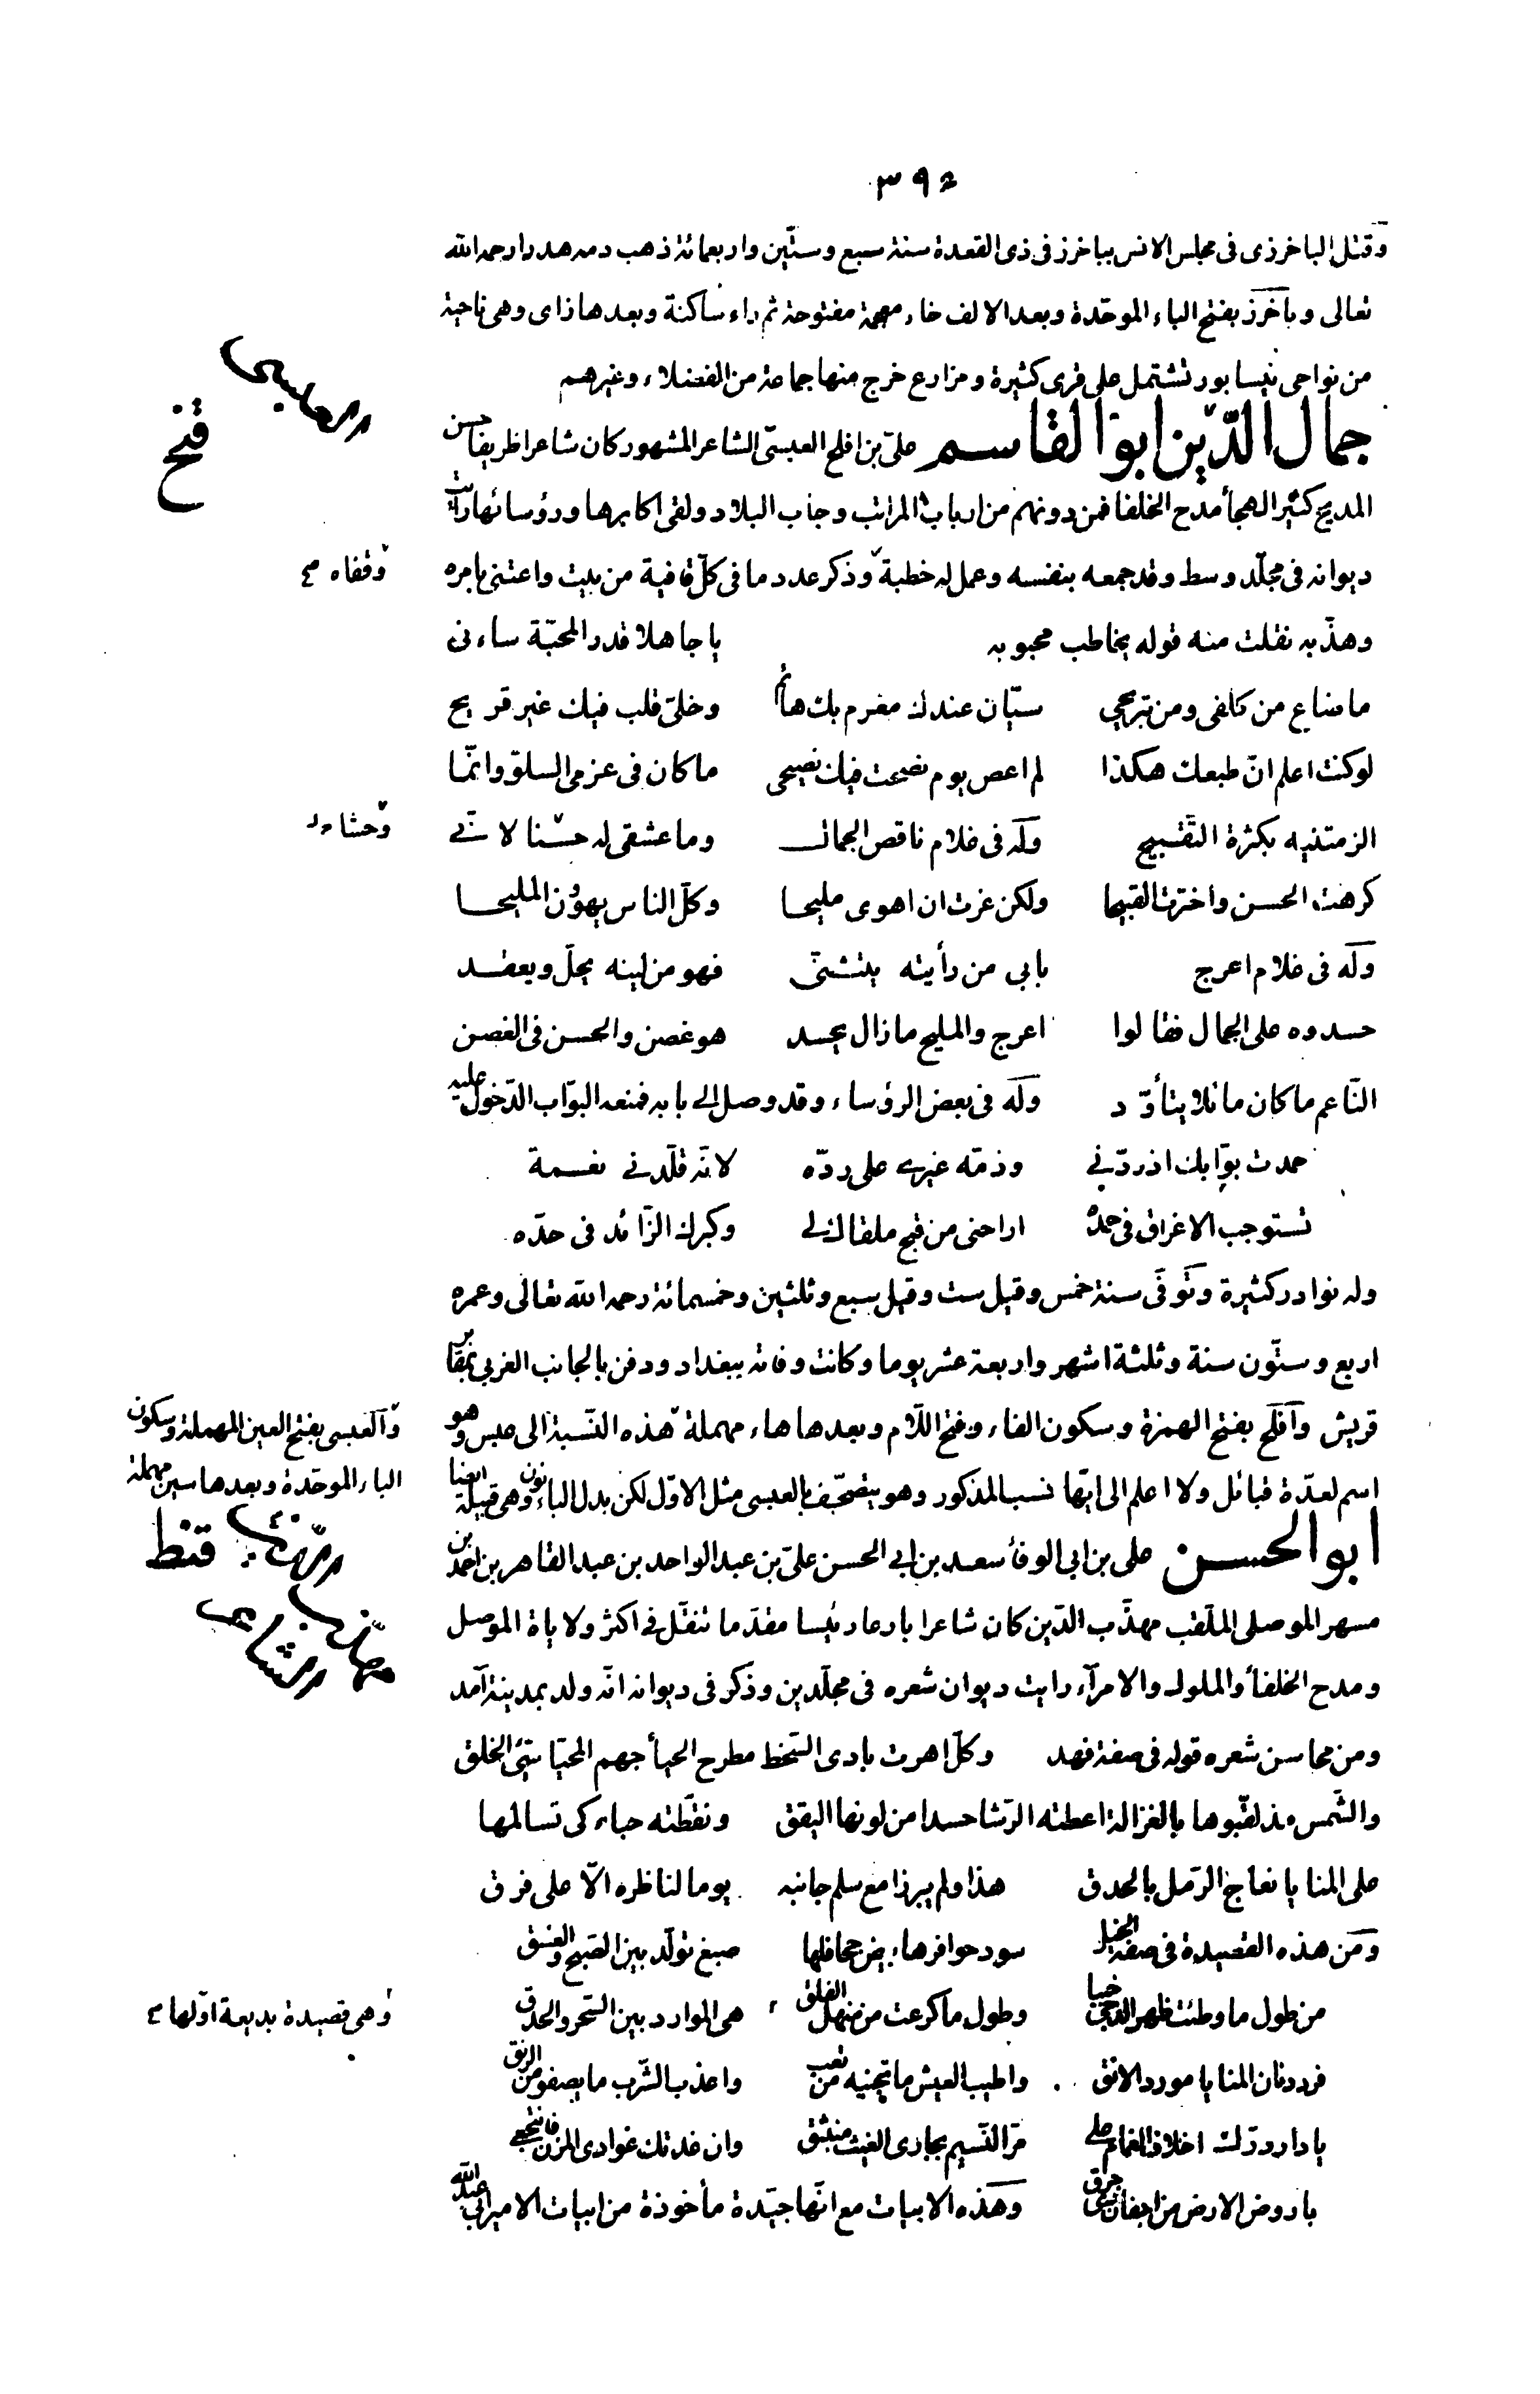 ٣٩٤
وقتل الباخرزى فى مجلس الانس بباخرز فى ذى القعدة سنة سبع وستّين واربعمائة ذهب دمه هدرا رحمه الله
تعالى وباخرز بفتح الباء الموحّدة وبعد الالف خاء معجمة مفتوحة ثم راء ساكنة وبعدها زاى وهى ناحية
من نواحى نيسابور تشتمل على قرى كثيرة ومزارع خرج منها جماعة من الفضلاء وغيرهم
جمال الدّين ابو القاسم علىّ بن افلح العبسىّ الشاعر المشهور كان شاعرا ظريفا حسن
المديح كثير الهجأ مدح الخلفا فمن دونهم من ارباب المراتب وجاب البلاد ولقى اكابرها ورؤسائها رأيت
ديوانه فى مجلّد وسط وقد جمعه بنفسه وعمل له خطبة وذكر عدد ما فى كلّ قافية من بيت واعتنى بامره
وقفاه
وهذّبه نقلت منه قوله يخاطب محبوبه يا جاهلا قدر المحبّة ساءنى
ما ضاع من كلفى ومن تبريحى سيّان عندك مغرم بك هائم وخلىّ قلب فيك غير قريح
لو كنت اعلم انّ طبعك هكذا لم اعص يوم نصحت فيك نصيحى ما كان فى عزمى السلوّ وانّما
الزمتنيه بكثرة التّقبيح وله فى غلام ناقص الجمال وما عشقى له حسنا لانّى
وحشا
كرهت الحسن واخترت القبيحا ولكن غرت ان اهوى مليحا وكلّ الناس يهوون المليحا
وله فى غلام اعرج بابى من رأيته يتثنّى فهو من لينه يحلّ ويعقد
حسدوه على الجمال فقالوا اعرج والمليح ما زال يحسد هو غصن والحسن فى الغصن
النّاعم ما كان مائلا يتأوّد وله فى بعض الرؤساء وقد وصل الى بابه فمنعه البوّاب الدّخول عليه
حمدت بوّابك اذ ردّنى وذمّه غيرى على ردّه لانّه قلّدنى نعمة
تستوجب الاغراق فى حمده اراحنى من قبح ملقاك لى وكبرك الزّائد فى حدّه
وله نوادر كثيرة وتوفّى سنة خمس وقيل ست وقيل سبع وثلثين وخمسمائة رحمه الله تعالى وعمره
اربع وستّون سنة وثلثة اشهر واربعة عشر يوما وكانت وفاته ببغداد ودفن بالجانب الغربى بمقابر
قريش وافلح بفتح الهمزة وسكون الفاء وفتح اللّام وبعدها هاء مهملة هذه النّسبة الى عبس وهو
والعبسى بفتح العين المهملة وسكون
الباء الموحّدة وبعدها سين مهملة
اسم لعدّة قبائل ولا اعلم الى ايّها نسب المذكور وهو يتصحّف بالعبسى مثل الاوّل لكن بدل الباء نون وهى قبيلة ايضا
ابو الحسن على بن ابى الوفأ سعد بن ابى الحسن علىّ بن عبد الواحد بن عبد القاهر بن احمد بن
مسهر الموصلى الملقب مهذّب الدّين كان شاعرا بارعا رئيسا مقدّما تنقّل فى اكثر ولاياة الموصل
مهذّب الشاعر
ومدح الخلفأ والملوك والامرآء رايت ديوان شعره فى مجلّدين وذكر فى ديوانه انّه ولد بمدينة آمد
ومن محاسن شعره قوله فى صفة فهد وكلّ اهرت بادى السّخط مطرح الحيأ جهم المحيّا سيّئ الخلق
والشّمس مذ لقّبوها بالغزالة اعطته الرّشا حسدا من لونها اليقق ونقّطته حباء كى تسالمها
على المنايا نعاج الرّمل بالحدق هذا ولم يبرزا مع سلم جانبه يوما لناظره الّا على فرق
ومن هذه القصيدة فى صفة الخيل سود حوافرها بيض جحافلها صبغ تولّد بين الصّبح والغسق
من طول ما وطئت ظهر الدّجى خببا وطول ما كرعت من منهل الفلق هى الموارد بين السّحر والحدق
وهى قصيدة بديعة اوّلها
فردنان المنايا مورد الانق واطيب العيش ما تجنيه من تعب واعذب الشّرب ما يصفو من الرنق
يا دار درّت اخلاف الغمام على مرّ النّسيم بجارى الغيث منبثق وان غدتك غوادى المزن فانتجعى
يا روض الارض من اجفان ذى حرق وهذه الابيات مع انّها جيّدة مأخوذة من ابيات الامير ابى عبد الله